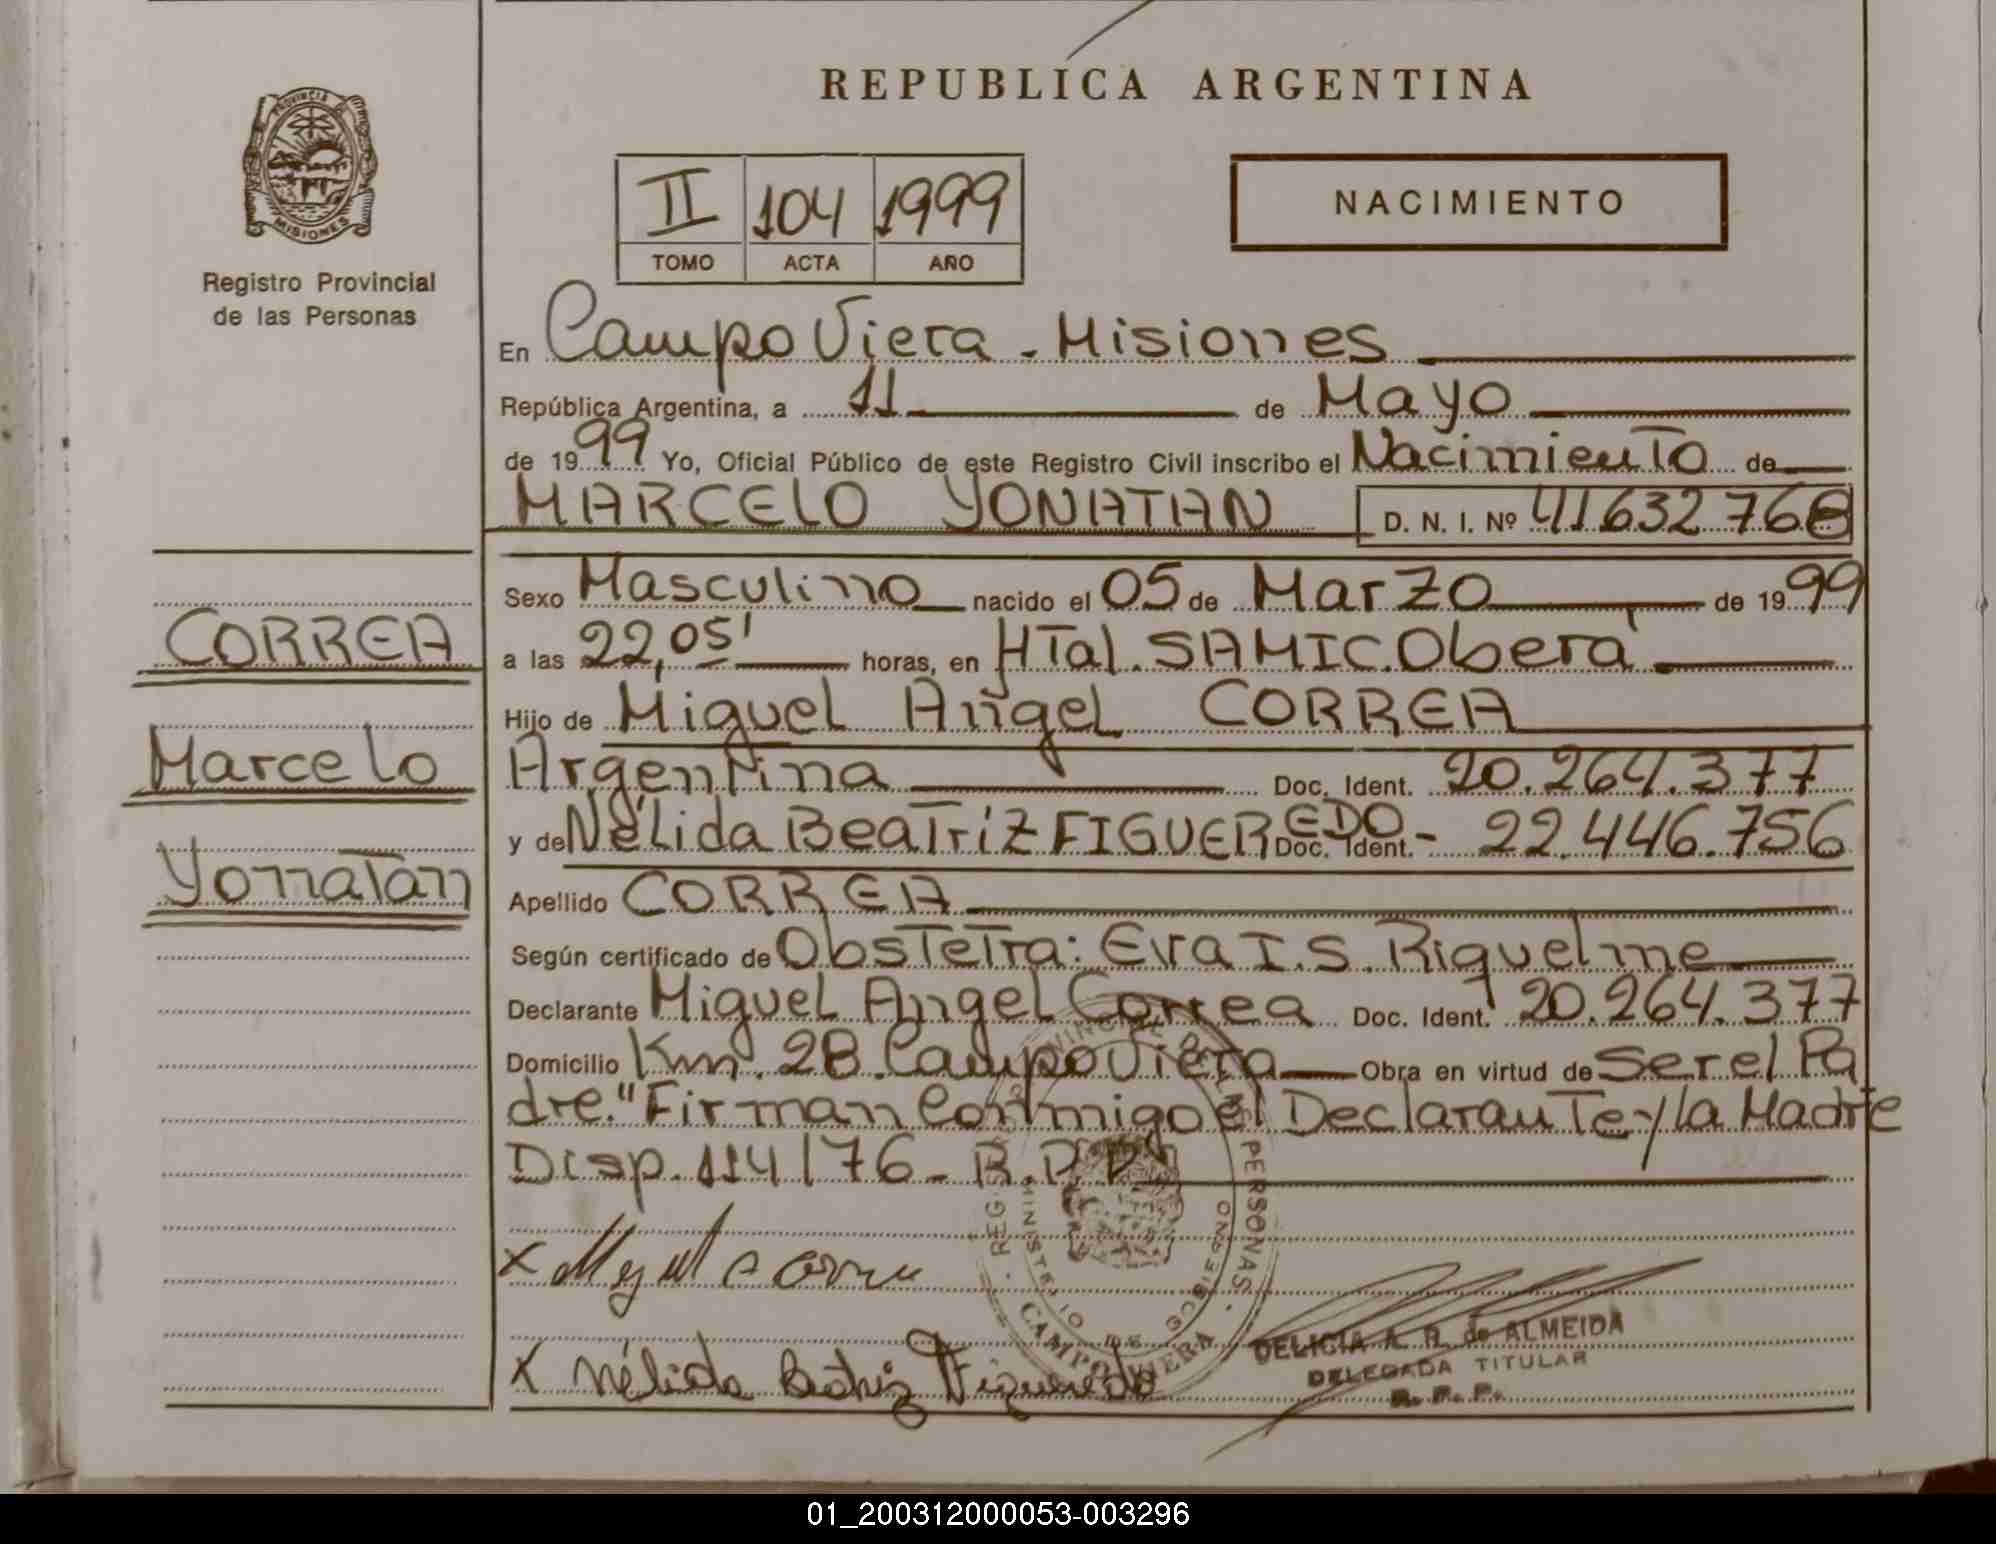 PROVINCIA
MISIONES
Registro Provincial
de las Personas
CORREA
Marcelo
Yonatan
REPUBLICA ARGENTINA
II 104 1999
TOMO ACTA AÑO
NACIMIENTO
En Campo Viera - Misiones
República Argentina, a 11 de Mayo
de 1999 Yo, Oficial Público de este Registro Civil inscribo el Nacimiento de
MARCELO YONATAN D. N. I. Nº 41632768
Sexo Masculino nacido el 05 de Marzo de 1999
a las 22,05' horas, en HTal. SAMIC. Oberá
Hijo de Miguel Angel CORREA
Argentina Doc. Ident. 20.264.377
y de Nélida Beatríz FIGUEREDO Doc. Ident. - 22.446.756
Apellido CORREA
Según certificado de Obstetra: Eva I.S. Riquelme
Declarante Miguel Angel Correa Doc. Ident. 20.264.377
Domicilio Km. 28. Campo Viera Obra en virtud de ser el Pa
dre." Firman Conmigo el Declarante y la Madre
Disp. 114/76 - R.P.P.
x Miguel A Correa
x Nélida Beatriz Figueredo
REG. PROVINCIAL DE LAS PERSONAS
MINISTERIO DE GOBIERNO
CAMPO VIERA
DELICIA A. R. de ALMEIDA
DELEGADA TITULAR
R. P. P.
01_200312000053-003296